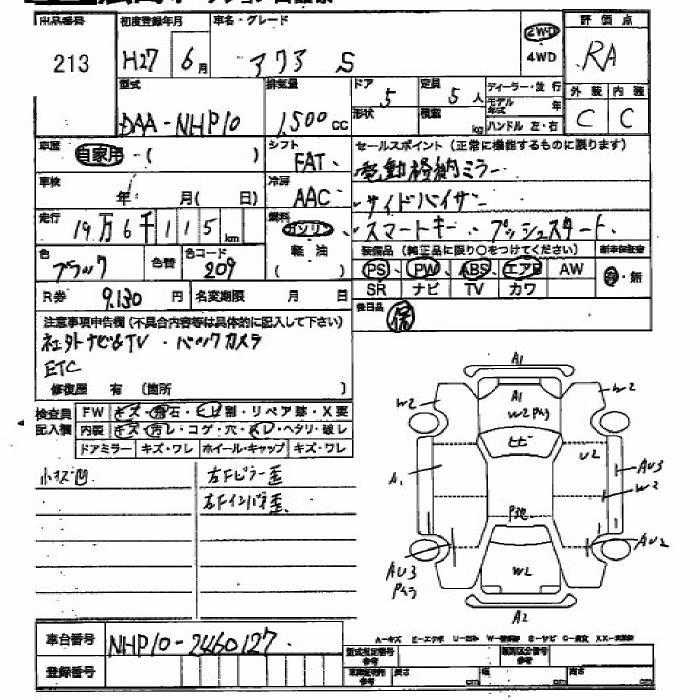 出品番号 初度登録年月 車名・グレード 評価点
213 H27年 6月 アクア S 2WD 4WD RA
型式 排気量 ドア 5 定員 5人 ディーラー・並行 外装 内装
DAA-NHP10 1,500cc 形状 積載 kg モデル年式 年 ハンドル 左・右 C C
車歴 自家用・( ) シフト FAT セールスポイント(正常に機能するものに限ります)
電動格納ミラー
車検 年 月( 日) 冷房 AAC サイドバイザー
走行 19万6千115km 燃料 ガソリン スマートキー・プッシュスタート
軽油
( )
色 ブラック 色替 色コード 209 装備品(純正品に限り○をつけてください) 新車保証書
PS PW ABS エアB AW 有・無
SR ナビ TV カワ
R券 9,130円 名変期限 月 日 後日品 保
注意事項申告欄(不具合内容等は具体的に記入して下さい)
社外ナビ&TV・バックカメラ
ETC
修復歴 有(箇所 )
検査員 FW キズ・飛石・ヒビ割・リペア跡・X要
記入欄 内装 キズ・汚レ・コゲ・穴・スレ・ヘタリ・破レ
ドアミラー キズ・ワレ ホイール・キャップ キズ・ワレ
小キズ凹 右Fピラー歪
右Fインパネ歪
A1
W2 A1 W2
W2
ヒビ
U2
A1 AU3
W2
AU3 AU2
W2
A2
A-キズ E-エクボ U-凹み W-補修跡 S-サビ C-腐食 XX-交換済
車台番号 NHP10-2460127
登録番号
型式指定番号 参考 類別区分番号 参考
長さ cm 幅 cm 高さ cm